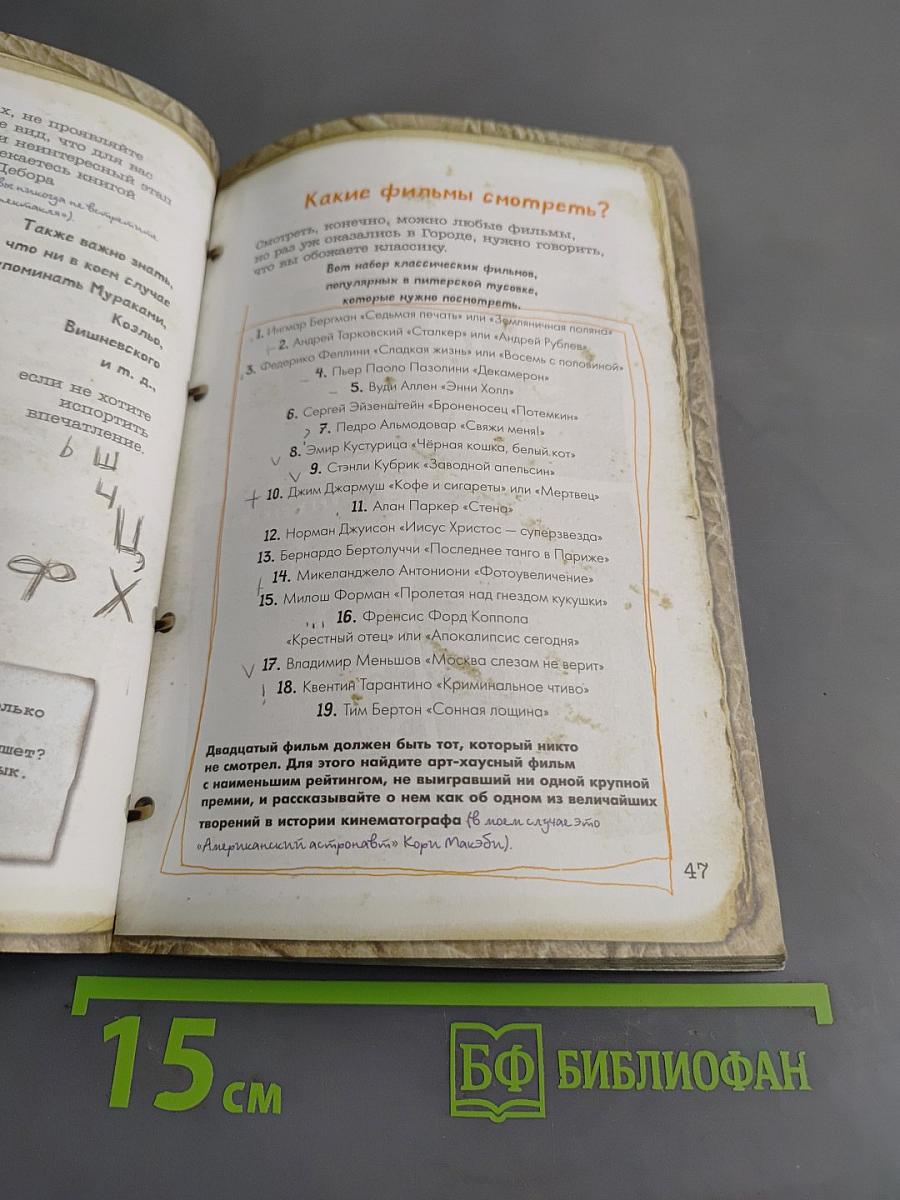 х, не проявляйте
е вид, что для вас
и неинтересный этап
екаетесь книгой
Дебора
вы никогда не встретите
Также важно знать,
что ни в коем случае
упоминать Мураками,
Коэльо,
Вишневского
и т. д.,
если не хотите
испортить
впечатление.
Ь Ш
Ч
Ц
Ф Х
олько
шет?
ык.
Какие фильмы смотреть?
Смотреть, конечно, можно любые фильмы,
но раз уж оказались в Городе, нужно говорить,
что вы обожаете классику.
Вот набор классических фильмов,
популярных в питерской тусовке,
которые нужно посмотреть.
1. Ингмар Бергман «Седьмая печать» или «Земляничная поляна»
2. Андрей Тарковский «Сталкер» или «Андрей Рублев»
3. Федерико Феллини «Сладкая жизнь» или «Восемь с половиной»
4. Пьер Паоло Пазолини «Декамерон»
5. Вуди Аллен «Энни Холл»
6. Сергей Эйзенштейн «Броненосец «Потемкин»
7. Педро Альмодовар «Свяжи меня!»
8. Эмир Кустурица «Чёрная кошка, белый кот»
9. Стэнли Кубрик «Заводной апельсин»
10. Джим Джармуш «Кофе и сигареты» или «Мертвец»
11. Алан Паркер «Стена»
12. Норман Джуисон «Иисус Христос — суперзвезда»
13. Бернардо Бертолуччи «Последнее танго в Париже»
14. Микеланджело Антониони «Фотоувеличение»
15. Милош Форман «Пролетая над гнездом кукушки»
16. Френсис Форд Коппола
«Крестный отец» или «Апокалипсис сегодня»
17. Владимир Меньшов «Москва слезам не верит»
18. Квентин Тарантино «Криминальное чтиво»
19. Тим Бертон «Сонная лощина»
Двадцатый фильм должен быть тот, который никто
не смотрел. Для этого найдите арт-хаусный фильм
с наименьшим рейтингом, не выигравший ни одной крупной
премии, и рассказывайте о нем как об одном из величайших
творений в истории кинематографа (в моем случае это
«Американский астронавт» Кори Макэби).
47
15 см
БФ БИБЛИОФАН